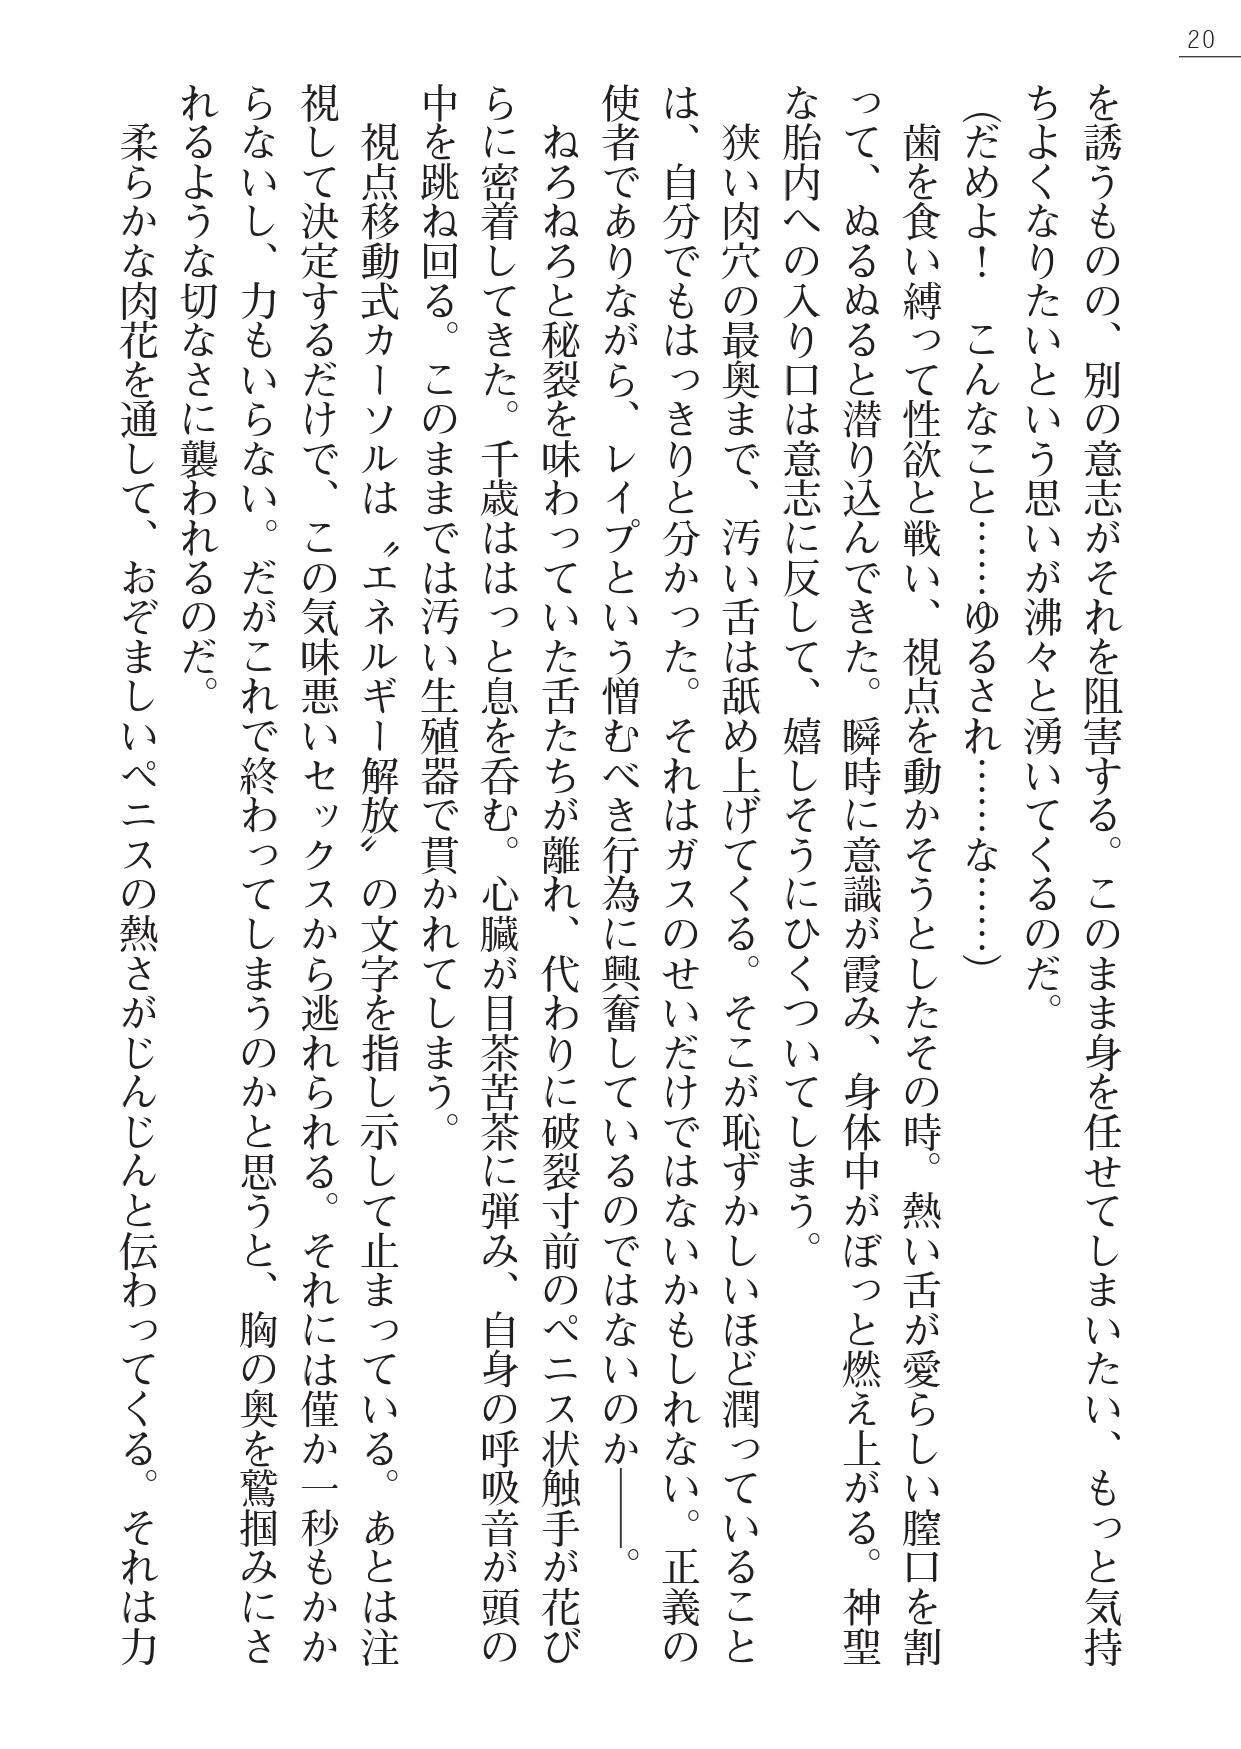 20
を誘うものの、別の意志がそれを阻害する。このまま身を任せてしまいたい、もっと気持
ちよくなりたいという思いが沸々と湧いてくるのだ。
(だめよ！　こんなこと……ゆるされ……な……)
　歯を食い縛って性欲と戦い、視点を動かそうとしたその時。熱い舌が愛らしい膣口を割
って、ぬるぬると潜り込んできた。瞬時に意識が霞み、身体中がぼっと燃え上がる。神聖
な胎内への入り口は意志に反して、嬉しそうにひくついてしまう。
　狭い肉穴の最奥まで、汚い舌は舐め上げてくる。そこが恥ずかしいほど潤っていること
は、自分でもはっきりと分かった。それはガスのせいだけではないかもしれない。正義の
使者でありながら、レイプという憎むべき行為に興奮しているのではないのか――。
　ねろねろと秘裂を味わっていた舌たちが離れ、代わりに破裂寸前のペニス状触手が花び
らに密着してきた。千歳ははっと息を呑む。心臓が目茶苦茶に弾み、自身の呼吸音が頭の
中を跳ね回る。このままでは汚い生殖器で貫かれてしまう。
　視点移動式カーソルは〝エネルギー解放〟の文字を指し示して止まっている。あとは注
視して決定するだけで、この気味悪いセックスから逃れられる。それには僅か一秒もかか
らないし、力もいらない。だがこれで終わってしまうのかと思うと、胸の奥を鷲掴みにさ
れるような切なさに襲われるのだ。
　柔らかな肉花を通して、おぞましいペニスの熱さがじんじんと伝わってくる。それは力